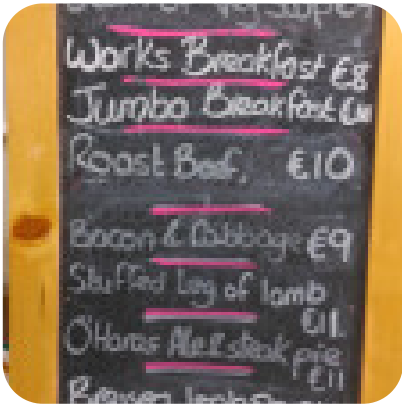 Works Breakfast €8
Jumbo Breakfast
Roast Beef, €10
Bacon & Cabbage €9
Stuffed Leg of lamb
€11.
O'Haras Ale & steak pie
€11